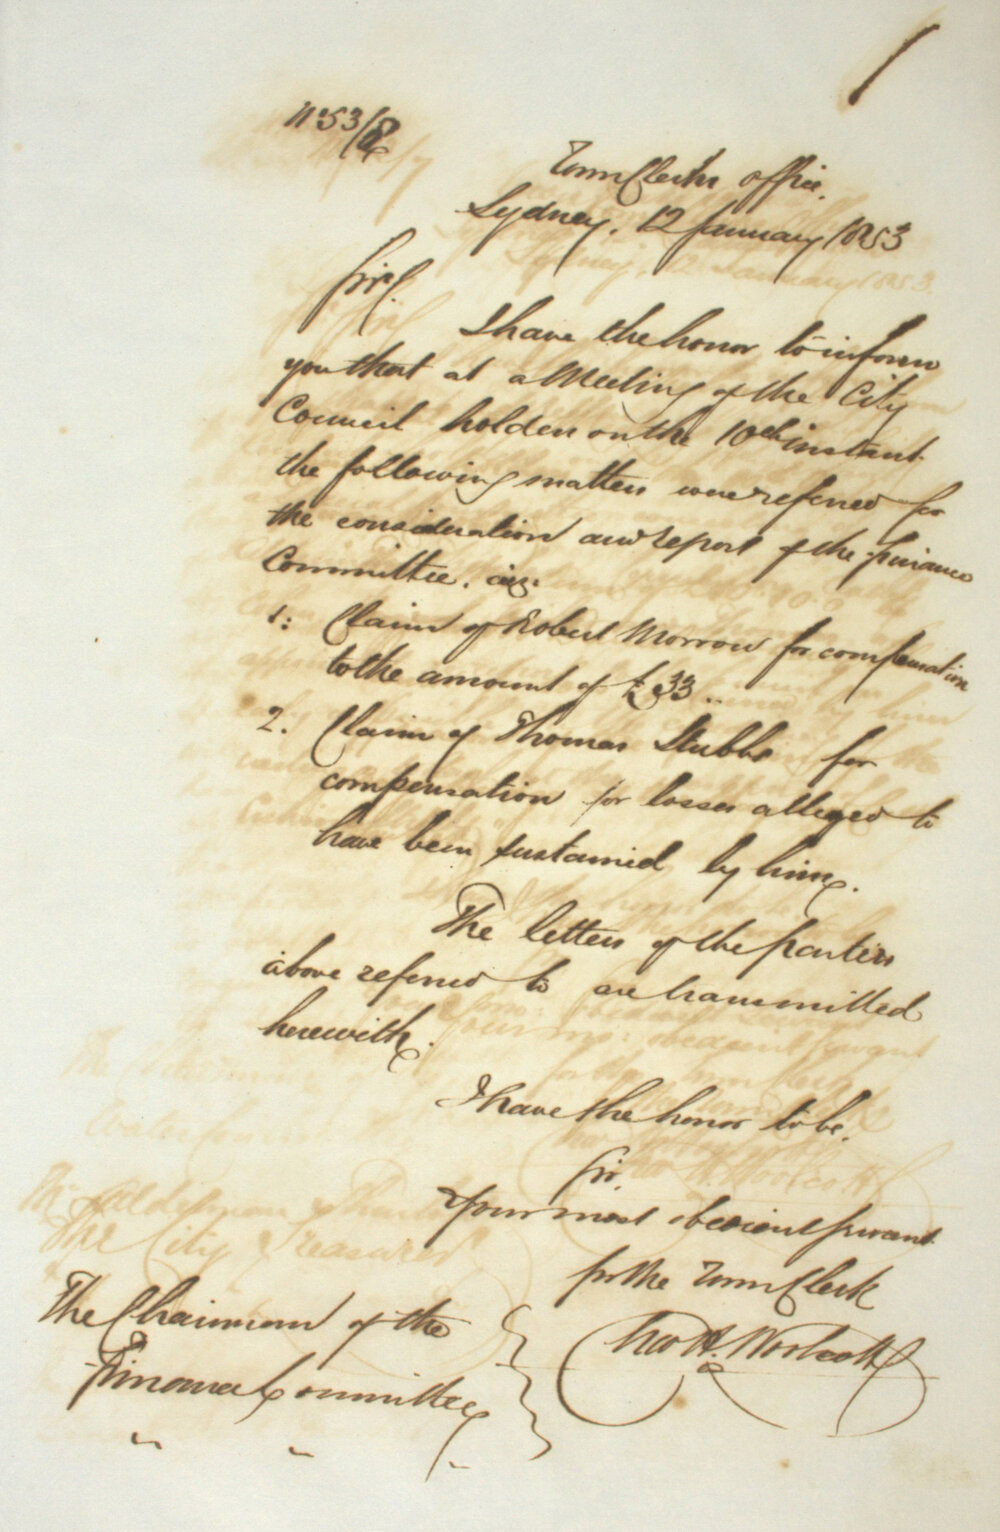 No 53/8
Town Clerks office.
Sydney, 12 January 1853
Sir,
I have the honor to inform
you that at a Meeting of the City
Council holden on the 10th instant
the following matters were referred for
the consideration and report of the finance
Committee. viz:
1: Claim of Robert Morrow for compensation
to the amount of £33 ..
2. Claim of Thomas Stubbs for
compensation for losses alleged to
have been sustained by him.
The letters of the parties
above referred to are transmitted
herewith.
I have the honor to be.
Sir,
Your most obedient Servant
for the Town Clerk
Chas H. Woolcott
The Chairman of the
Finance Committee